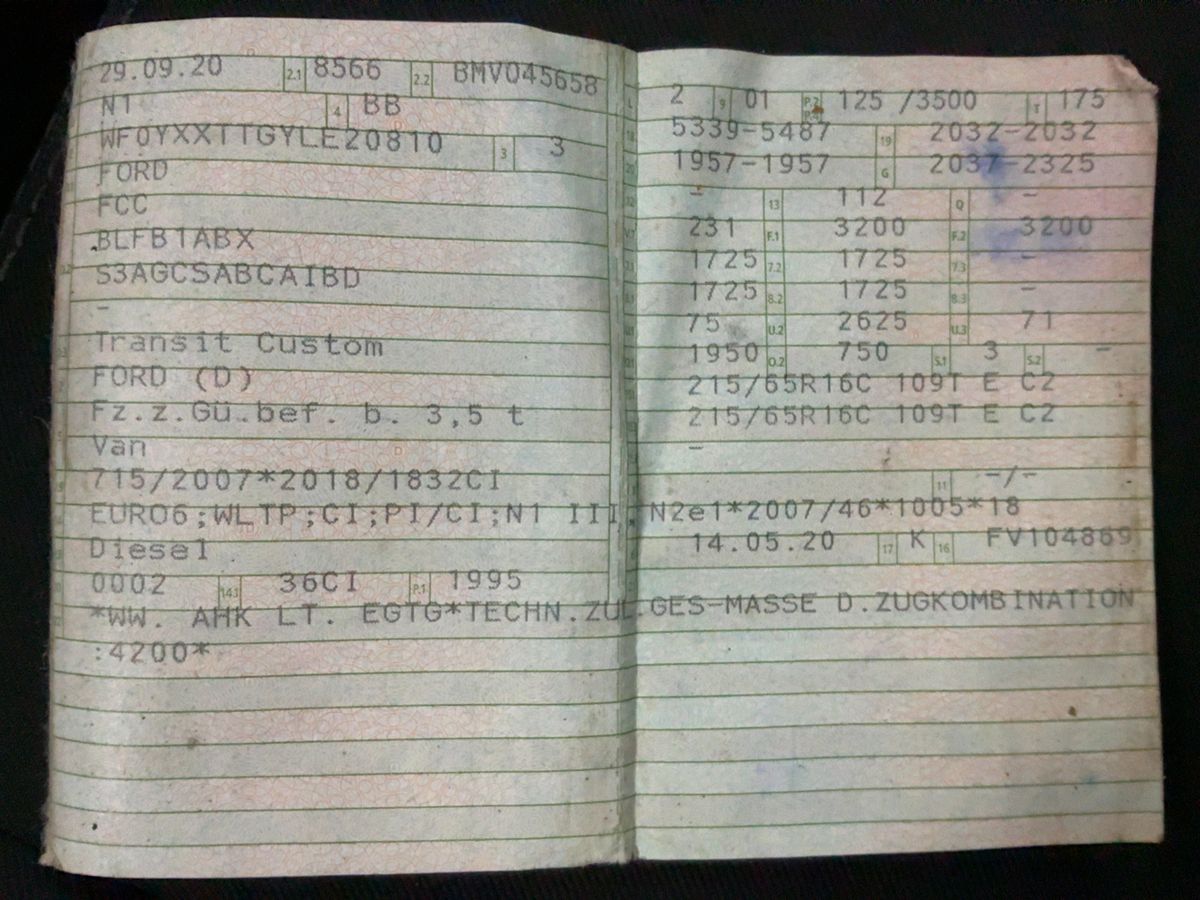 29.09.20 2.1 8566 2.2 BMV045658
N1 4 BB
WF0YXXTTGYLE20810 3 3
FORD
FCC
BLFB1ABX
S3AGCSABCAIBD
-
Transit Custom
FORD (D)
Fz.z.Gü.bef. b. 3,5 t
Van
715/2007*2018/1832CI
EURO6;WLTP;CI;PI/CI;N1 III, N2
Diesel
0002 14.1 36CI P.1 1995
*WW. AHK LT. EGTG*TECHN.ZUL.GES-MASSE D.ZUGKOMBINATION
:4200*
L 2 9 01 P.2 P.4 125 /3500 T 175
18 5339-5487 19 2032-2032
1957-1957 G 2037-2325
- 13 112 Q -
V.7 231 F.1 3200 F.2 3200
1725 7.2 1725 7.3 -
1725 8.2 1725 8.3 -
75 U.2 2625 U.3 71
1950 O.2 750 S.1 3 S.2 -
215/65R16C 109T E C2
215/65R16C 109T E C2
-
11 -/-
e1*2007/46*1005*18
14.05.20 17 K 16 FV104869